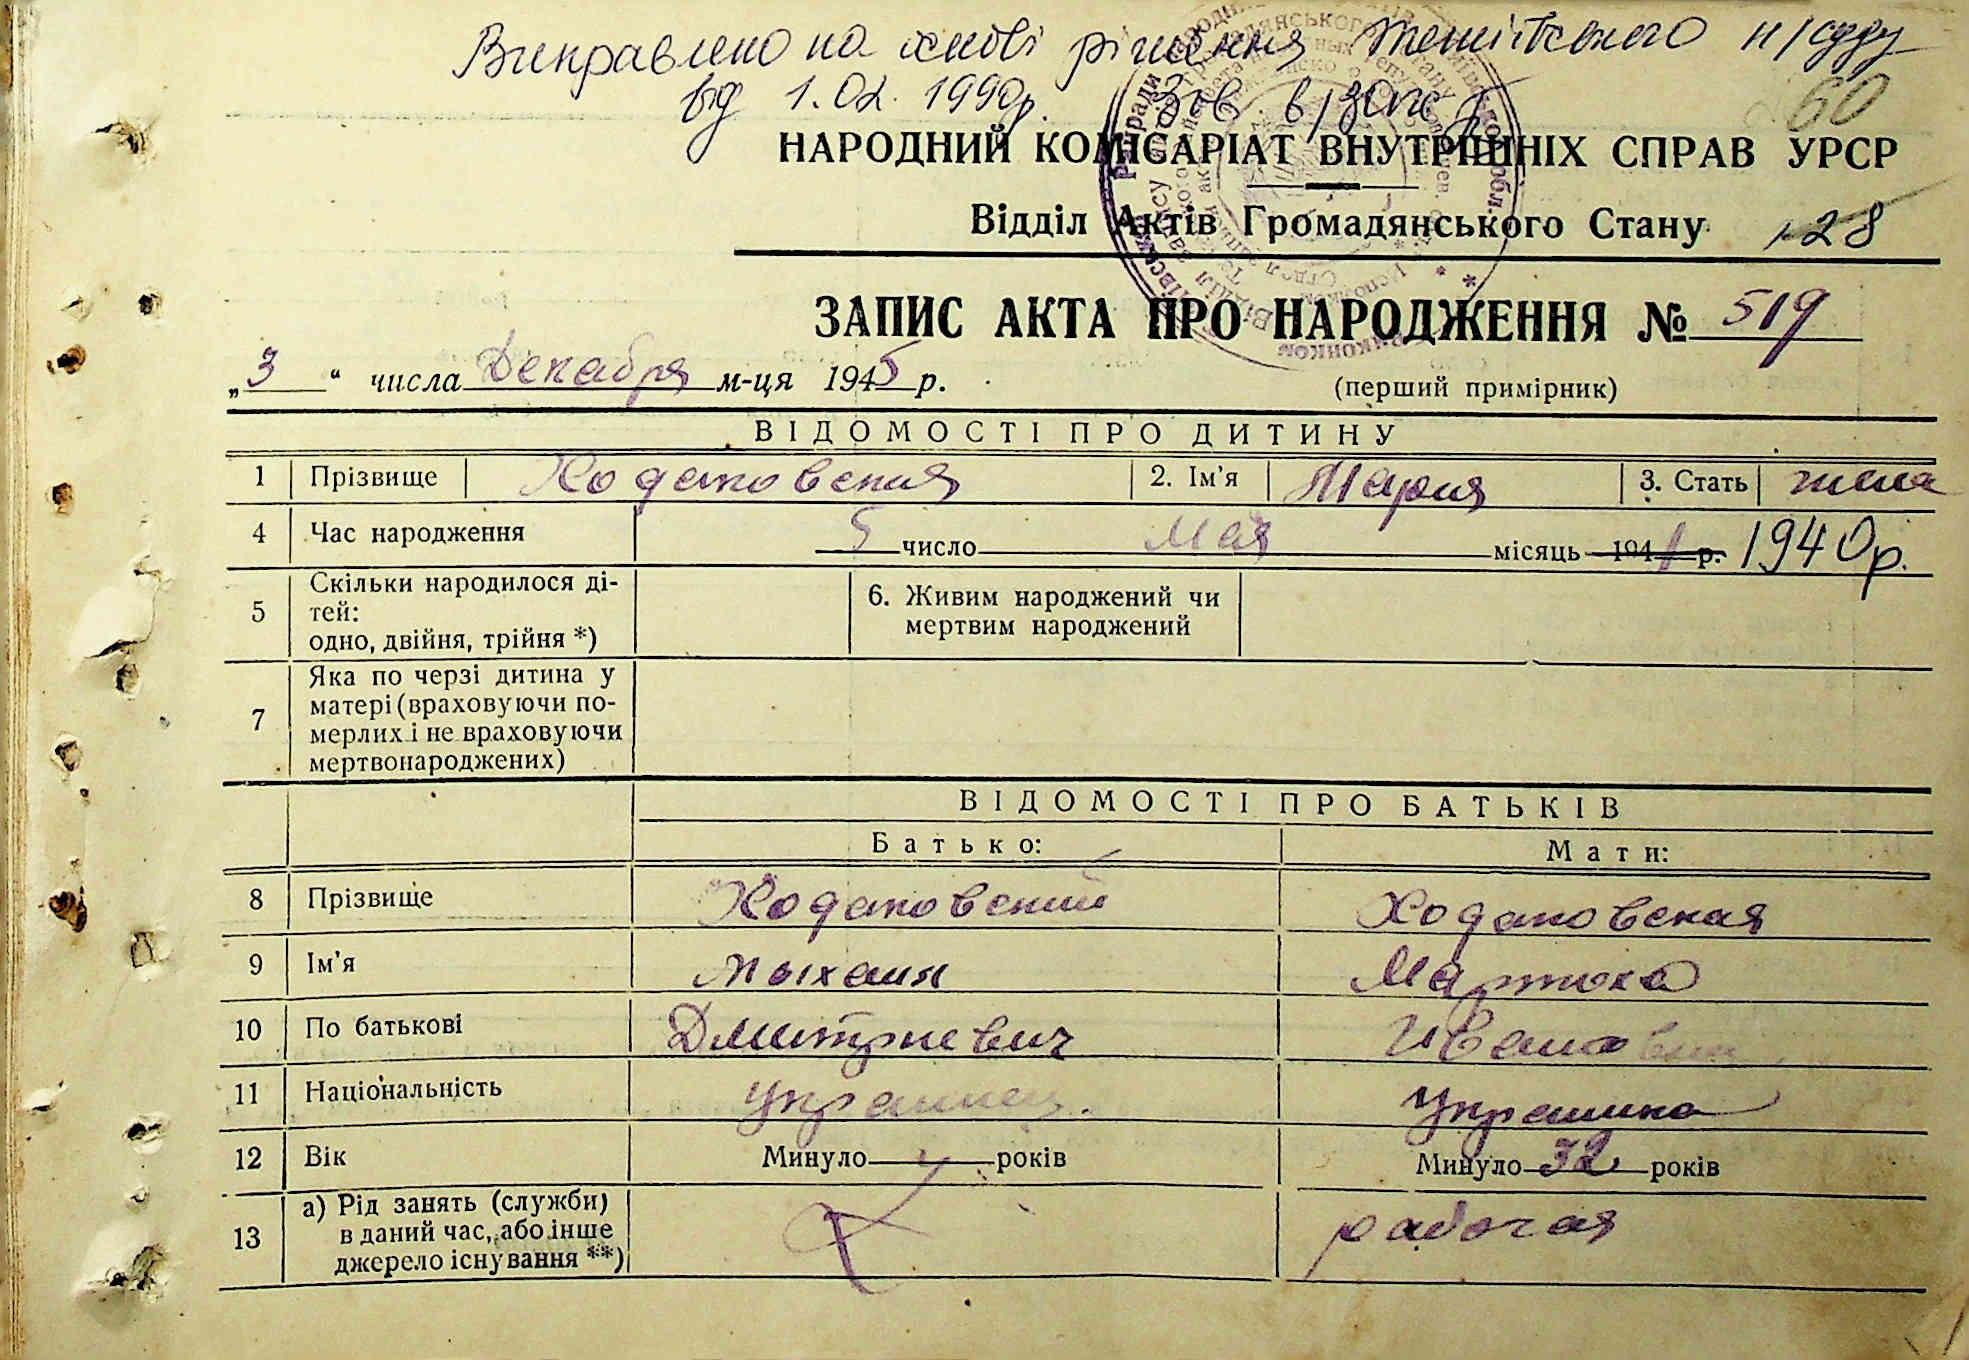 Виправлено на основі рішення Тетіївського н/суду
від 1.02.1990р. Зав. в/загс
60
НАРОДНИЙ КОМІСАРІАТ ВНУТРІШНІХ СПРАВ УРСР
Відділ Актів Громадянського Стану 128
ЗАПИС АКТА ПРО НАРОДЖЕННЯ № 519
„3“ числа Декабря м-ця 1945 р. (перший примірник)
ВІДОМОСТІ ПРО ДИТИНУ
1 Прізвище Ходаковская 2. Ім'я Мария 3. Стать жена
4 Час народження 5 число Мая місяць 1941 р. 1940р.
5 Скільки народилося ді-
тей:
одно, двійня, трійня *)
6. Живим народжений чи
мертвим народжений
7 Яка по черзі дитина у
матері (враховуючи по-
мерлих і не враховуючи
мертвонароджених)
ВІДОМОСТІ ПРО БАТЬКІВ
Батько: Мати:
8 Прізвище Ходаковский Ходаковская
9 Ім'я Мыхаил
10 По батькові Дмитриевич Ивановна
11 Національність украинец. украинка
12 Вік Минуло років Минуло 32 років
13 а) Рід занять (служби)
в даний час, або інше
джерело існування **)
рабочая